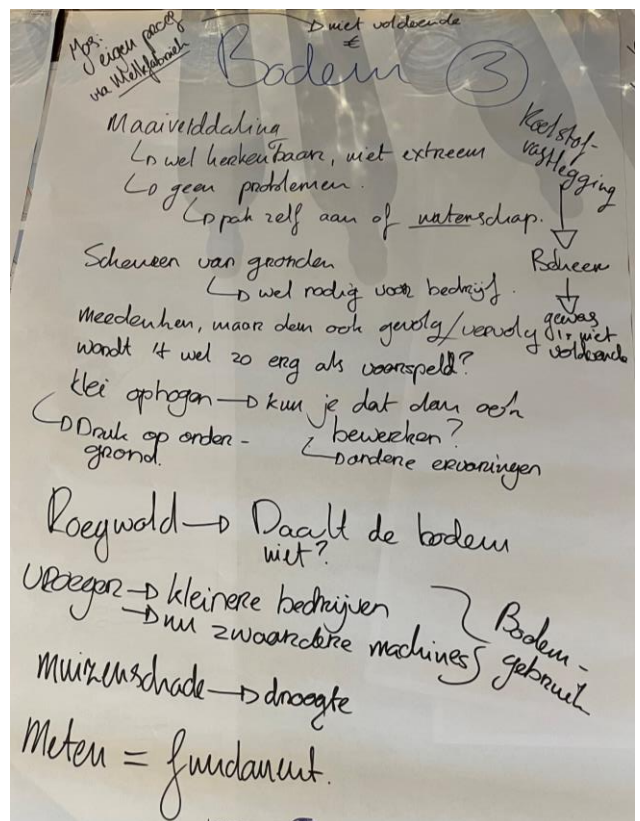 Mos:
eigen proef
via Melkfabriek
↳ niet voldoende
€
Bodem 3
Maaivelddaling
↳ wel herkenbaar, niet extreem
↳ geen problemen.
↳ pak zelf aan of waterschap.
Koolstof-
vastlegging
↓
Beheer
↓
gewas
is niet
voldoende
Scheuren van gronden
↳ wel nodig voor bedrijf.
meedenken, maar dem ook gevolg/vervolg
wordt 't wel zo erg als voorspeld?
klei ophogen → kun je dat dan ook
bewerken?
↳ Druk op onder-
grond.
↳ andere ervaringen
Roegwold → Daalt de bodem
niet?
vroeger → kleinere bedrijven
→ nu zwaardere machines
Bodem-
gebruik
muizenschade → droogte
Meten = fundament.